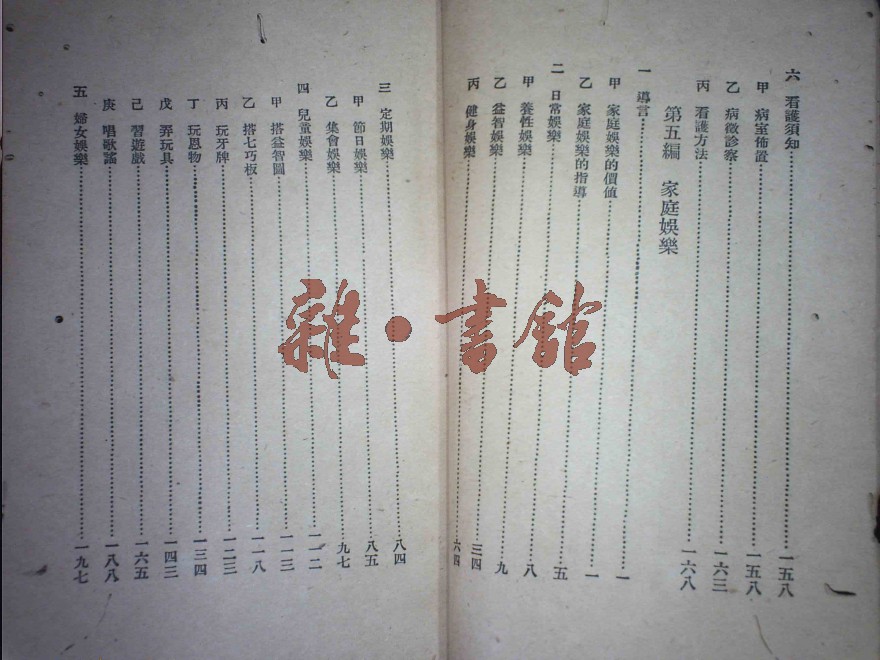 六 看護須知……一五八
甲 病室佈置……一五八
乙 病徵診察……一六三
丙 看護方法……一六八
第五編 家庭娛樂
一 導言……一
甲 家庭娛樂的價值……一
乙 家庭娛樂的指導……五
二 日常娛樂……八
甲 養性娛樂……九
乙 益智娛樂……三四
丙 健身娛樂……六四
三 定期娛樂……八四
甲 節日娛樂……八五
乙 集會娛樂……九七
四 兒童娛樂……一一二
甲 搭益智圖……一一三
乙 搭七巧板……一一八
丙 玩牙牌……一二三
丁 玩恩物……一三四
戊 弄玩具……一四三
己 習遊戲……一六五
庚 唱歌謠……一八八
五 婦女娛樂……一九七
雜·書館